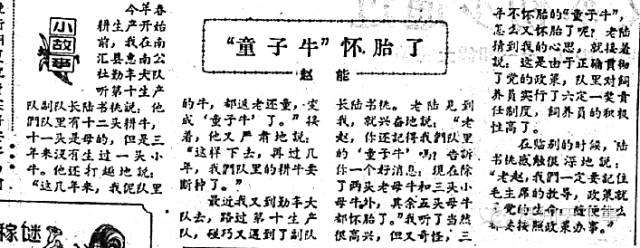 小故事
“童子牛”怀胎了
赵能
今年春
耕生产开始
前，我在南
汇县惠南公
社勤丰大队
听第十生产
队副队长陆书桃说：他
們队里有十二头耕牛，
十一头是母的，但是三
年来沒有生过一头小
牛。他还打趣地說：
“这几年来，我伲队里
的牛，都返老还童，变
成‘童子牛’了。”接
着，他又严肃地說：
“这样下去，再过几
年，我們队里的耕牛要
断种了。”
最近我又到勤丰大
队去，路过第十生产
队，碰巧又遇到了副队
长陆书桃。老陆见到
我，就兴奋地說：“老
赵，你还記得我們队里
的‘童子牛’嗎？告訴
你一个好消息：现在除
了两头老母牛和三头小
母牛外，其余五头母牛
都怀胎了。”我听了当然
很高兴，但又奇怪，三
年不怀胎的“童子牛”，
怎么又怀胎了呢？老陆
猜到我的心思，就接着
說：这是由于正确貫彻
了党的政策，队里对飼
养员实行了六定一奖责
任制度，飼养员的积极
性高了。
在临别的时候，陆
书桃感触很深地說：
“老赵，我們一定要記住
毛主席的教导，政策就
是党的生命，随便什么
都要按照政策办事。”
稼謎